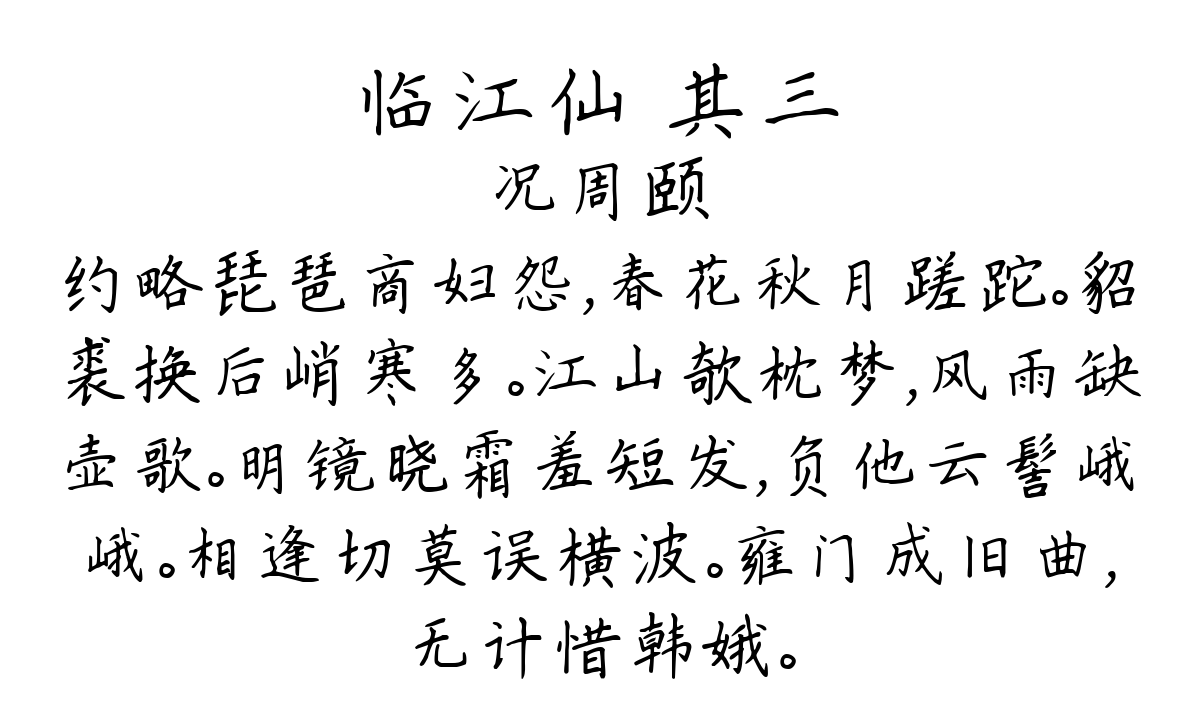 临江仙 其三
况周颐
约略琵琶商妇怨,春花秋月蹉跎。貂
裘换后峭寒多。江山欹枕梦,风雨缺
壶歌。明镜晓霜羞短发,负他云髻峨
峨。相逢切莫误横波。雍门成旧曲,
无计惜韩娥。